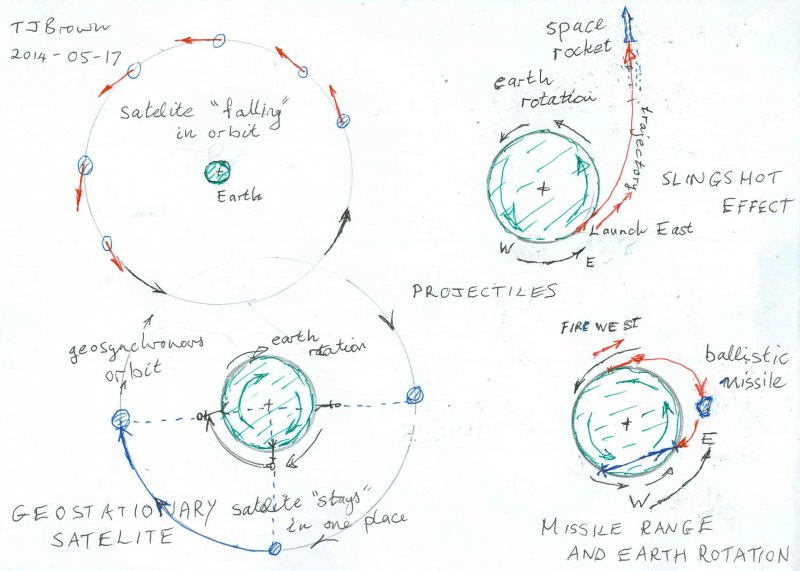 TJBrown
2014-05-17
satelite "falling"
in orbit
Earth
space
rocket
earth
rotation
trajectory
Launch East
W
E
SLINGSHOT
EFFECT
PROJECTILES
geosynchronous
orbit
earth
rotation
GEOSTATIONARY
SATELITE
satelite "stays"
in one place
FIRE WEST
ballistic
missile
E
W
MISSILE RANGE
AND EARTH ROTATION